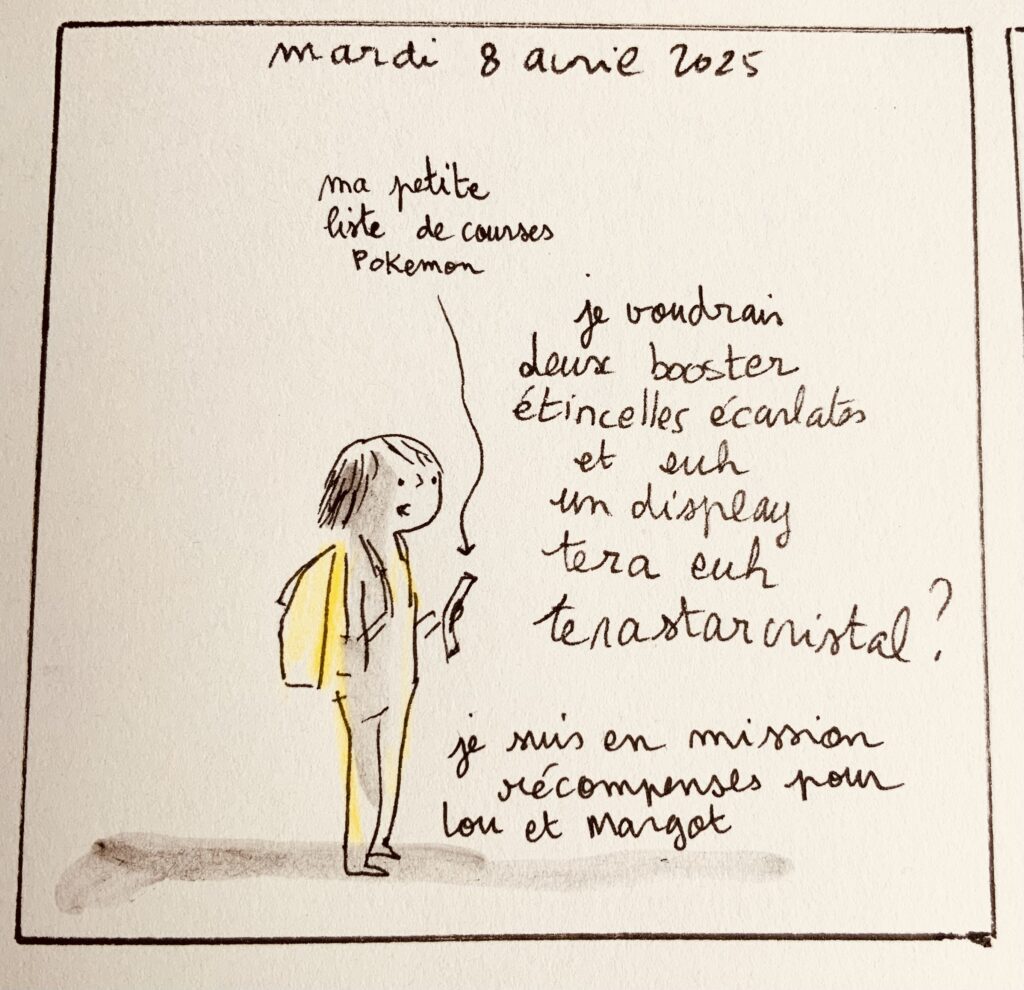 mardi 8 avril 2025
ma petite
liste de courses
Pokemon
je voudrais
deux booster
étincelles écarlates
et euh
un display
tera euh
terastarcristal ?
je suis en mission
récompenses pour
Lou et Margot